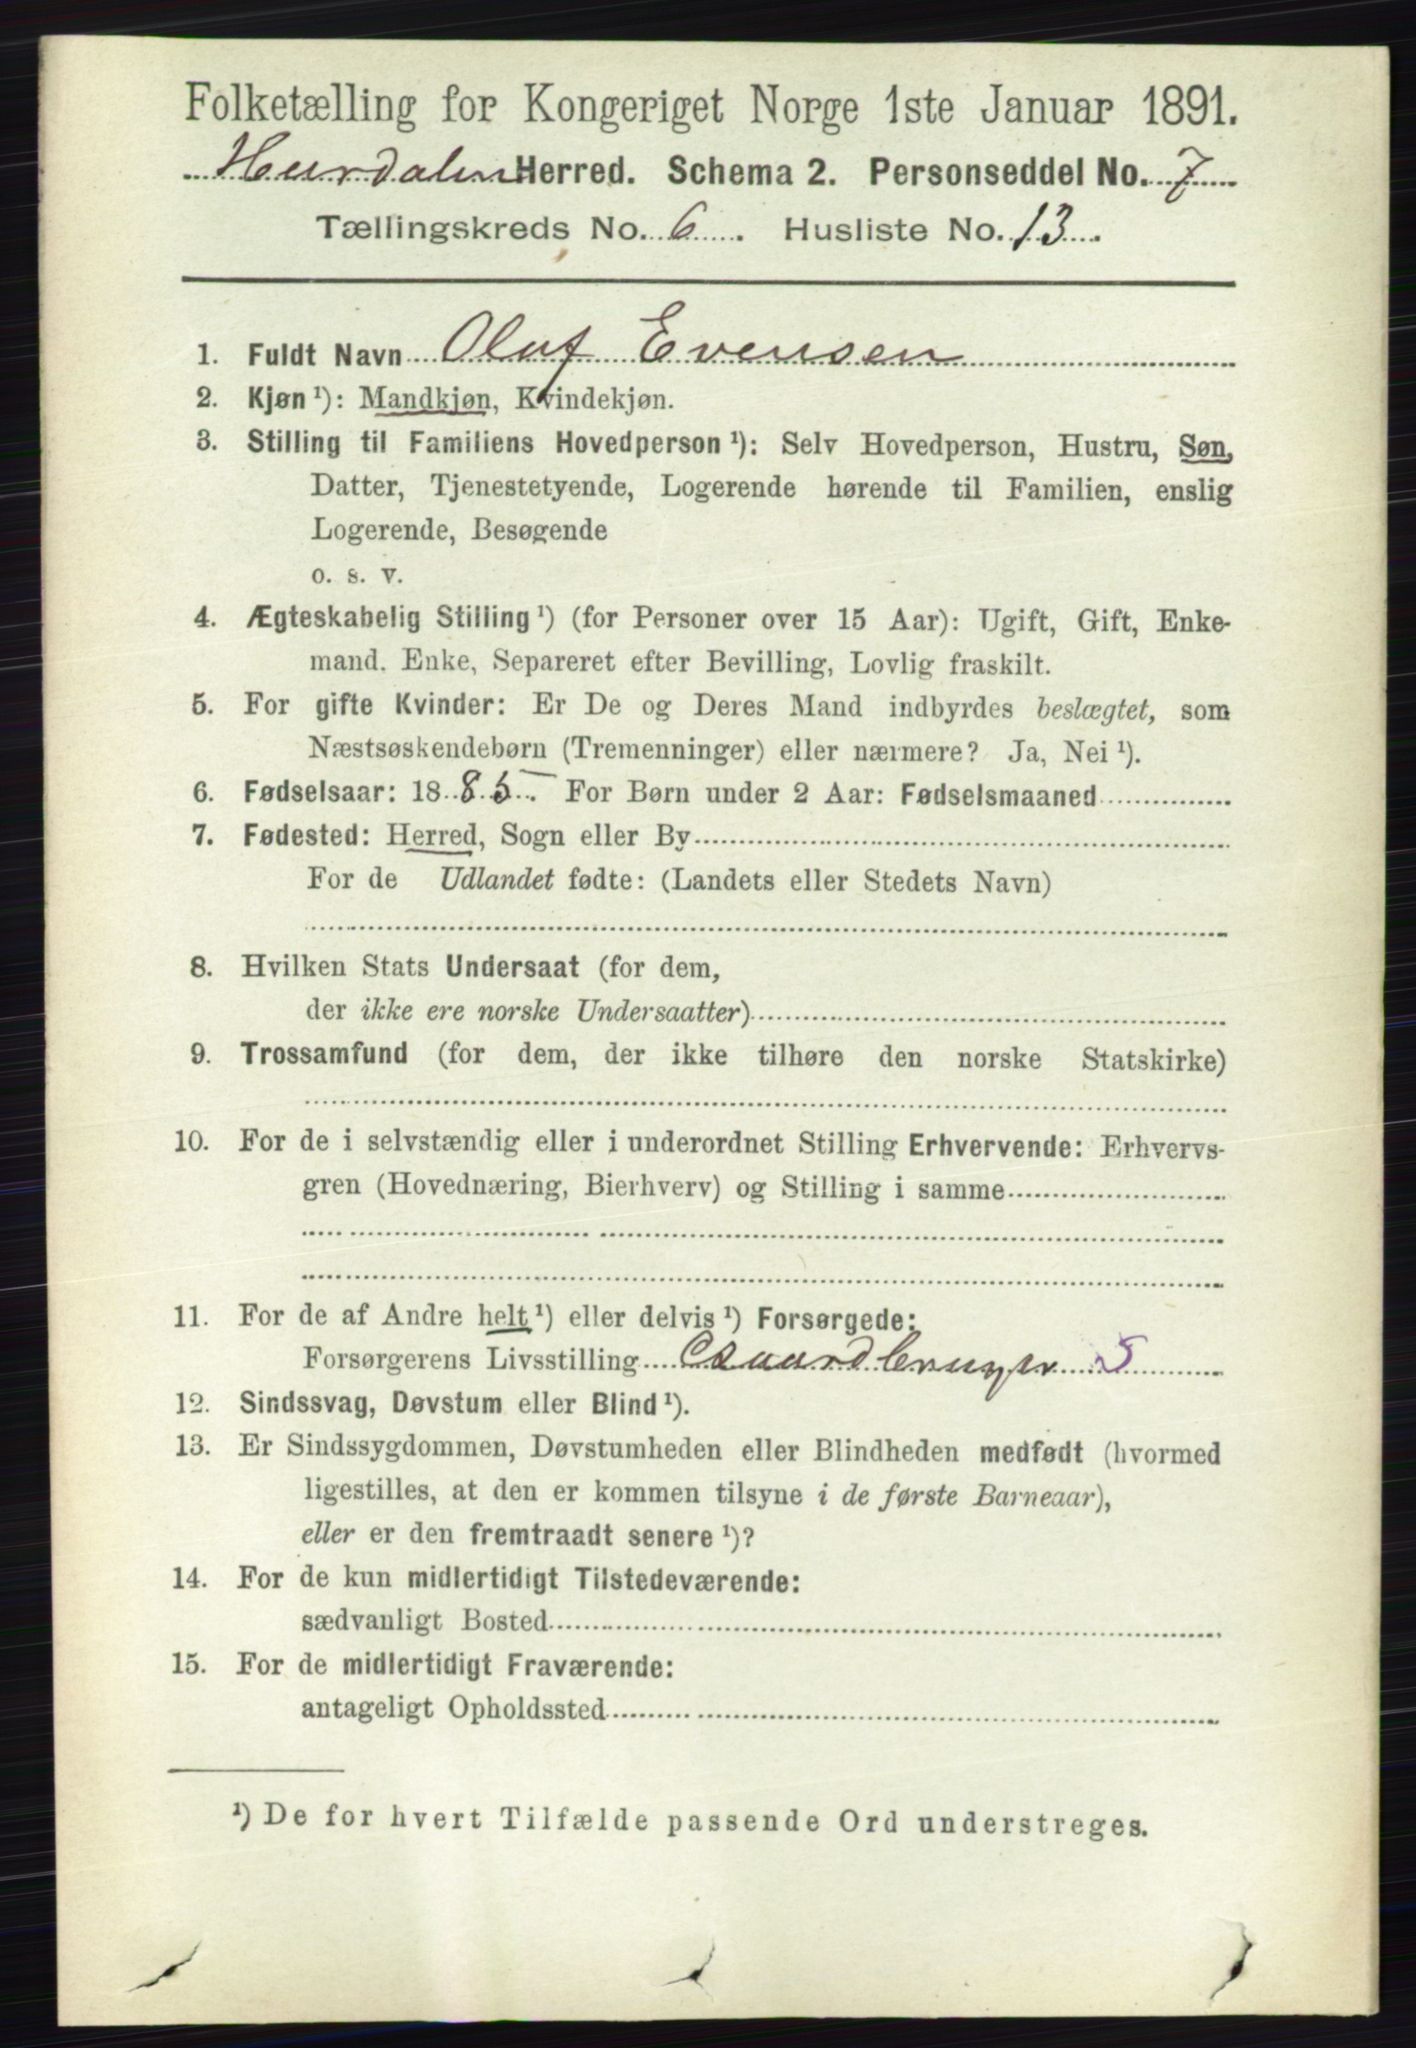 Folketælling for Kongeriget Norge 1ste Januar 1891.
Hurdalen Herred. Schema 2. Personseddel No. 7
Tællingskreds No. 6. Husliste No. 13.
1. Fuldt Navn Oluf Evensen
2. Kjøn ¹): Mandkjøn, Kvindekjøn.
3. Stilling til Familiens Hovedperson ¹): Selv Hovedperson, Hustru, Søn,
Datter, Tjenestetyende, Logerende hørende til Familien, enslig
Logerende, Besøgende
o. s. v.
4. Ægteskabelig Stilling ¹) (for Personer over 15 Aar): Ugift, Gift, Enke-
mand. Enke, Separeret efter Bevilling, Lovlig fraskilt.
5. For gifte Kvinder: Er De og Deres Mand indbyrdes beslægtet, som
Næstsøskendebørn (Tremenninger) eller nærmere? Ja, Nei ¹).
6. Fødselsaar: 1885. For Børn under 2 Aar: Fødselsmaaned
7. Fødested: Herred, Sogn eller By
For de Udlandet fødte: (Landets eller Stedets Navn)
8. Hvilken Stats Undersaat (for dem,
der ikke ere norske Undersaatter)
9. Trossamfund (for dem, der ikke tilhøre den norske Statskirke)
10. For de i selvstændig eller i underordnet Stilling Erhvervende: Erhvervs-
gren (Hovednæring, Bierhverv) og Stilling i samme
11. For de af Andre helt ¹) eller delvis ¹) Forsørgede:
Forsørgerens Livsstilling Gaardbruger S
12. Sindssvag, Døvstum eller Blind ¹).
13. Er Sindssygdommen, Døvstumheden eller Blindheden medfødt (hvormed
ligestilles, at den er kommen tilsyne i de første Barneaar),
eller er den fremtraadt senere ¹)?
14. For de kun midlertidigt Tilstedeværende:
sædvanligt Bosted
15. For de midlertidigt Fraværende:
antageligt Opholdssted
¹) De for hvert Tilfælde passende Ord understreges.